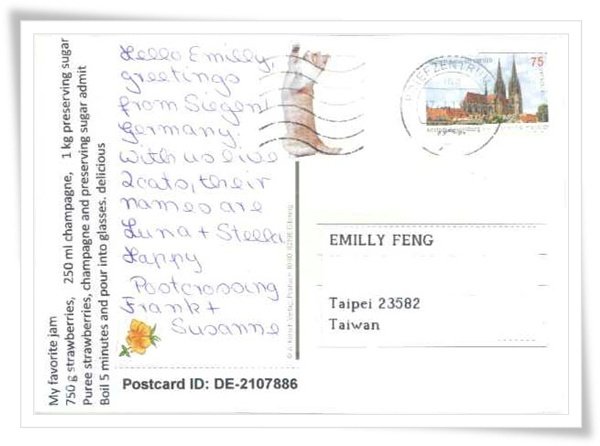 My favorite jam
750 g strawberries, 250 ml champagne, 1 kg preserving sugar
Puree strawberries, champagne and preserving sugar admit
Boil 5 minutes and pour into glasses. delicious
Hello Emilly,
greetings
from Siegen/
Germany.
With us live
2cats, their
names are
Luna + Stella
Happy
Postcrossing
Frank +
Susanne
Postcard ID: DE-2107886
BRIEFZENTRUM
75
EMILLY FENG
Taipei 23582
Taiwan